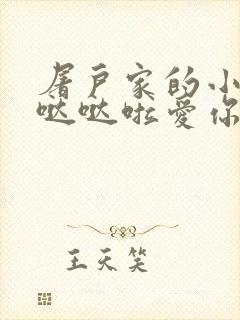 屠户家的小
哒哒啦爱你
王天笑